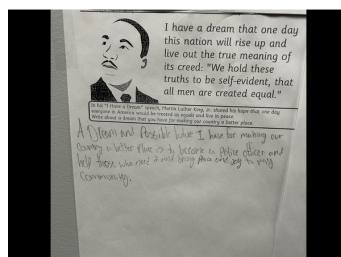 I have a dream that one day
this nation will rise up and
live out the true meaning of
its creed: "We hold these
truths to be self-evident, that
all men are created equal."
In his "I Have a Dream" speech, Martin Luther King, Jr. shared his hope that one day
everyone in America would be treated as equals and live in peace.
Write about a dream that you have for making our country a better place.
A Dream and Possible future I have for making our
country a better place is to become a Police officer and
help those who need it and bring Peace and Joy to my
community.